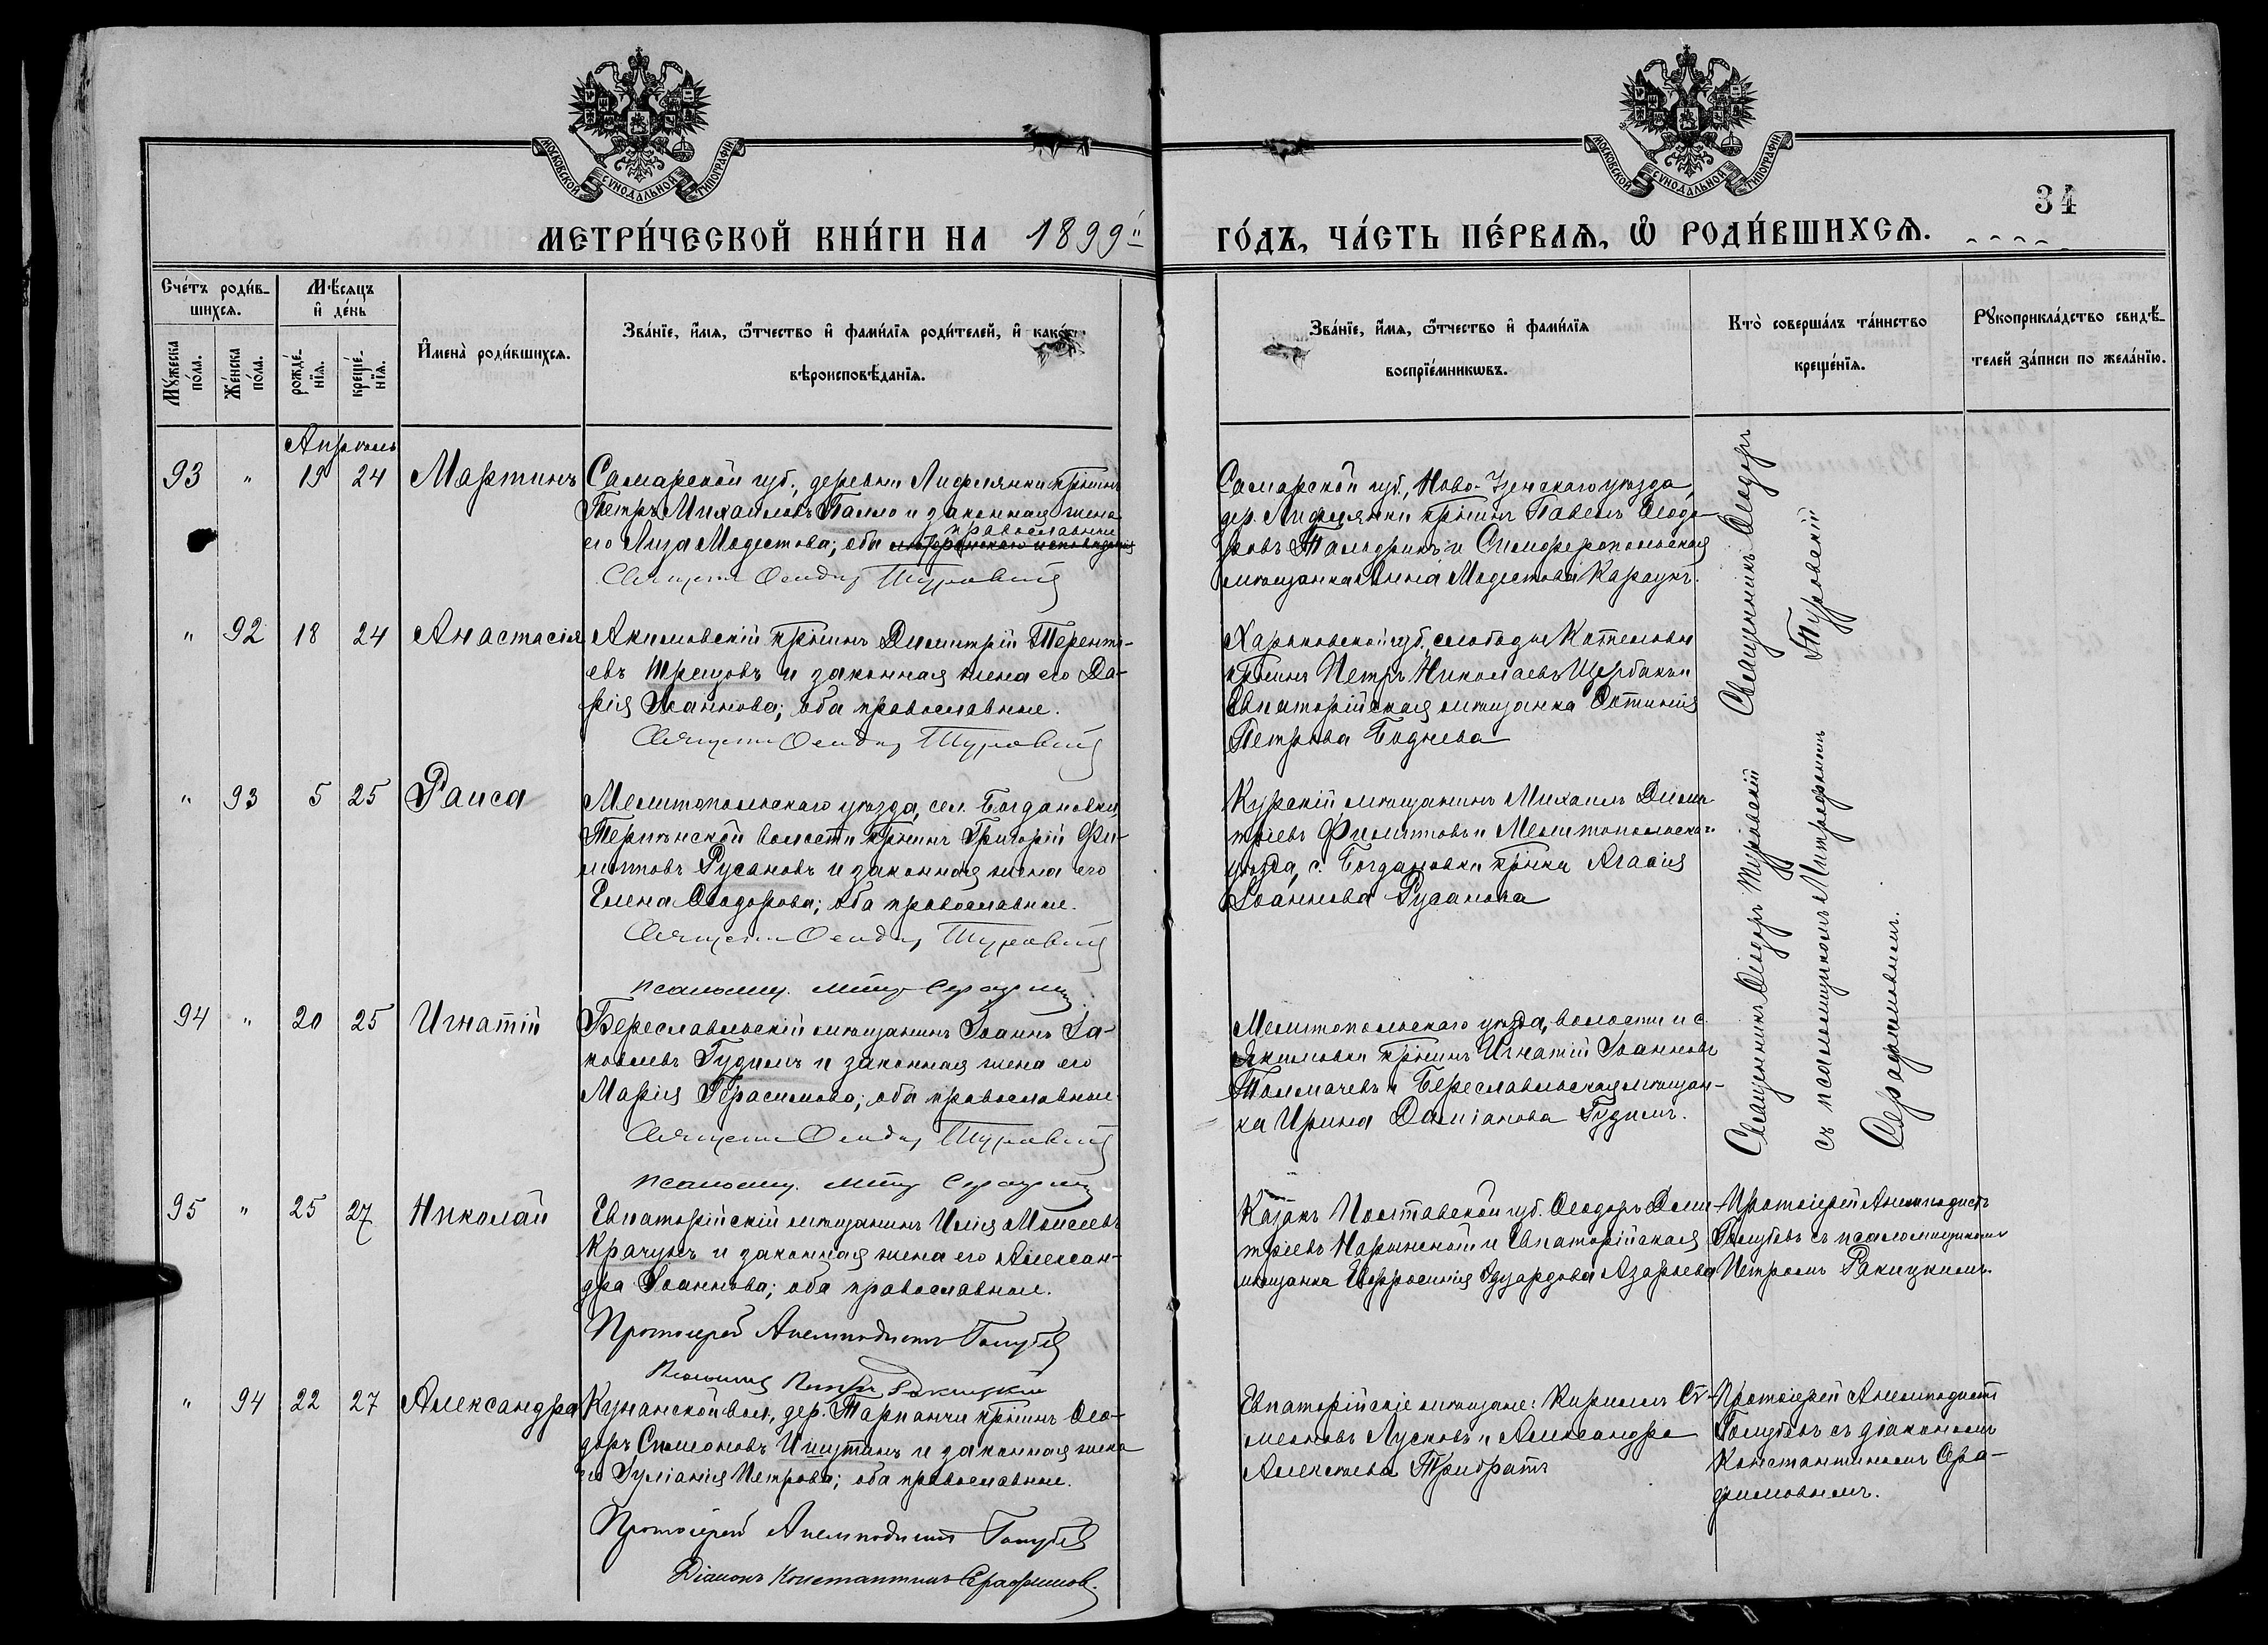 МОСКОВСКОЙ СѴНОДАЛЬНОЙ ТИПОГРАФІИ
МОСКОВСКОЙ СѴНОДАЛЬНОЙ ТИПОГРАФІИ
34
МЕТРИ́ЧЕСКОЙ КНИ́ГИ НА 1899й ГО́ДЪ, ЧА́СТЬ ПЕ́РВАѦ, Ѡ РОДИ́ВШИХСѦ.
Сче́тъ роди́в-
шихсѧ.
Мꙋ́жеска по́ла.
Же́нска по́ла.
Мѣ́сѧцъ
и҆ де́нь
рожде́-нїѧ.
креще́-нїѧ.
И҆мена̀ роди́вшихсѧ.
Зва́нїе, и҆́мѧ, ѻ҆́тчество и҆ фами́лїѧ роди́телей, и҆ како́гѡ
вѣроисповѣ́данїѧ.
Зва́нїе, и҆́мѧ, ѻ҆́тчество и҆ фами́лїѧ
воспрїе́мникѡвъ.
Кто̀ соверша́лъ та́инство
креще́нїѧ.
Рꙋкоприкла́дство свидѣ́-
телей за́писи по жела́нїю.
Апрѣль
93 " 19 24 Мартинъ
Самарской губ., деревни Лифлянки кр-нинъ
Петръ Михаиловъ Палло и законная жена
православные
его Лиза Модестова; оба лютеранскаго исповѣданія
Священ. Ѳеодоръ Туровскій
Самарской губ., Ново-Узенскаго уѣзда,
дер. Лифлянки кр-нинъ Павелъ Ѳеодо-
ровъ Тальдрикъ и Симферопольская
мѣщанка Анна Модестова Караукъ.
Священникъ Ѳеодоръ
Туровскій
" 92 18 24 Анастасія
Акимовскій кр-нинъ Димитрій Теренть-
евъ Трещовъ и законная жена его Да-
рія Іоаннова; оба православные.
Священ. Ѳеодоръ Туровскій
Харьковской губ., слободы Котельвы
кр-нинъ Петръ Николаевъ Щербакъ и
Евпаторійская мѣщанка Фотинія
Петрова Боднева
" 93 5 25 Раиса
Мелитопольскаго уѣзда, сел. Богдановки,
Терпѣнской волости кр-нинъ Григорій Фи-
липповъ Русановъ и законная жена его
Елена Ѳеодорова; оба православные.
Священ. Ѳеодоръ Туровскій
псаломщ. Митр. Серафим
Курскій мѣщанинъ Михаилъ Дими-
тріевъ Филиповъ и Мелитопольска-
уѣзда, с. Богдановки кр-нка Агаѳія
Іоаннова Русанова
Священникъ Ѳеодоръ Туровскій
съ псаломщикомъ Митрофаномъ
Серафимовымъ.
94 " 20 25 Игнатій
Береславльскій мѣщанинъ Іоаннъ Іа-
ковлевъ Гудимъ и законная жена его
Марія Герасимова; оба православные.
Священ. Ѳеодоръ Туровскій
псаломщ. Митр. Серафим
Мелитопольскаго уѣзда, волости и с.
Акимовки кр-нинъ Игнатій Іоанновъ
Толмачевъ и Береславльская мѣщан-
ка Ирина Даміанова Гудимъ.
95 " 25 27 Николай
Евпаторійскій мѣщанинъ Илія Моисеевъ
Крачунъ и законная жена его Алексан-
дра Іоаннова; оба православные.
Протоіерей Анемподистъ Голубев
Псаломщ Петръ Ракицкій
Казакъ Полтавской губ. Ѳеодоръ Дими-
тріевъ Нарынскій и Евпаторійская
мѣщанка Евфросинія Эдуардова Азарьева
Протоіерей Анемподистъ
Голубевъ съ псаломщикомъ
Петромъ Ракицкимъ.
" 94 22 27 Александра
Кучанской вол., дер. Тарпанчи кр-нинъ Ѳео-
доръ Симеоновъ Ишутинъ и законная жена
его Іуліанія Петрова; оба православные.
Протоіерей Анемподистъ Голубев
Діаконъ Константинъ Серафимов.
Евпаторійскіе мѣщане: Кириллъ Си-
меоновъ Лусковъ и Александра
Алексѣева Трибратъ
Протоіерей Анемподистъ
Голубевъ съ діакономъ
Константиномъ Сера-
фимовымъ.